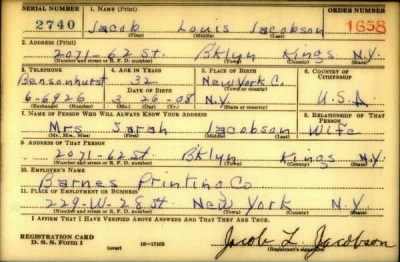 SERIAL NUMBER 1. NAME (Print) ORDER NUMBER
2740 Jacob Louis Jacobson 1658
(First) (Middle) (Last)
2. ADDRESS (Print)
2071-62 St. Bklyn Kings N.Y.
(Number and street or R. F. D. number) (Town) (County) (State)
3. TELEPHONE 4. AGE IN YEARS 5. PLACE OF BIRTH 6. COUNTRY OF CITIZENSHIP
Bensonhurst 32 New York C.
DATE OF BIRTH (Town or county)
6-6926 3-26-08 N.Y. U.S.A
(Exchange) (No.) (Mo.) (Day) (Yr.) (State or country)
7. NAME OF PERSON WHO WILL ALWAYS KNOW YOUR ADDRESS 8. RELATIONSHIP OF THAT PERSON
Mrs Sarah Jacobson Wife
(Mr., Mrs., Miss) (First) (Middle) (Last)
9. ADDRESS OF THAT PERSON
2071-62 St. Bklyn Kings N.Y.
(Number and street or R. F. D. number) (Town) (County) (State)
10. EMPLOYER'S NAME
Barnes Printing Co
11. PLACE OF EMPLOYMENT OR BUSINESS
229-W-28 St. New York N.Y.
(Number and street or R. F. D. number) (Town) (County) (State)
I AFFIRM THAT I HAVE VERIFIED ABOVE ANSWERS AND THAT THEY ARE TRUE.
REGISTRATION CARD
D. S. S. FORM 1 (over) 16-17105 Jacob L. Jacobson
(Registrant's signature)